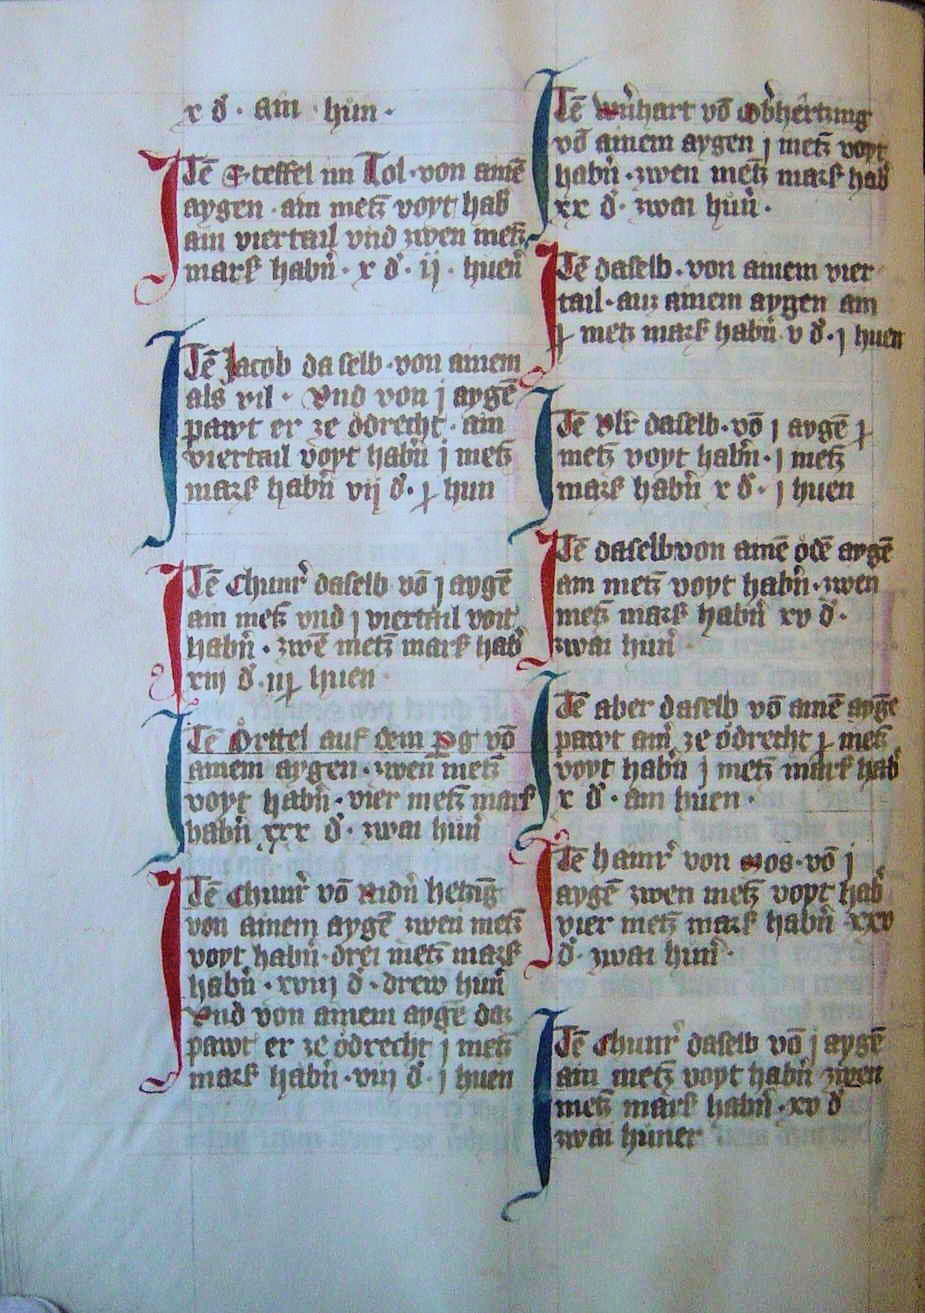 x d̵ · ain · hůn ·
Itē Steffel im Tol · von ainē
aygen · ain metz̄ voyt hab̄
ain viertail vnd zwen metz̄
mark habn̄ · x d̵ · ij · huen
Itē Jacob da selb · von ainem
als vil · Vnd von j aygē
pawt er ze ödrecht · ain
viertail voyt habn̄ j metz̄
mark habn̄ vij d̵ · hun
Itē Chunr̄ daselb vō j aygē
ain metz̄ vnd j viertail voit
habn̄ · zwē metz̄ mark hab̄
xiij d̵ · huen ·
Itē Örttel auf dem vō
ainem aygen · zwen metz̄
voyt habn̄ · vier metz̄ mark
habn̄ xxx d̵ · zwai hun̄
Itē Chunr̄ vō Nidn̄ hetzīg
von ainem aygē zwen metz̄
voyt habn̄ · drei metz̄ mark
habn̄ · xviij d̵ · drew hun̄
Vnd von ainem aygē daz
pawt er ze ödrecht j metz̄
mark habn̄ · viij d̵ · j huen
Itē Wn̄hart vō Obn̄hertzing
vō ainem aygen j metz̄ voyt
habn̄ · zwen metz̄ mark hab̄
xx d̵ · zwai hun̄ ·
Itē daselb · von ainem vier
tail · auz ainem aygen ain
metz mark habn̄ v d̵ · j huen
Itē Vlr̄ daselb · vō j aygē
metz̄ voyt habn̄ · j metz̄
mark habn̄ x d̵ · j huen
Itē daselb von ainē ödē aygē
ain metz̄ voyt habn̄ · zwen
metz̄ mark habn̄ xv d̵ ·
zwai hun̄ ·
Itē aber daselb vō ainē aygē
pawt ainr̄ ze ödrecht metz̄
voyt habn̄ j metz̄ mark hab̄
x d̵ · ain huen ·
Itē hainr̄ von Mos · vō j
aygē zwen metz̄ voyt hab̄
vier metz̄ mark habn̄ · xxv
d̵ · zwai hun̄ ·
Itē Chunr̄ daselb vō j aygē
ain metz̄ voyt habn̄ zwen
metz̄ mark habn̄ · xv d̵
zwai hůner